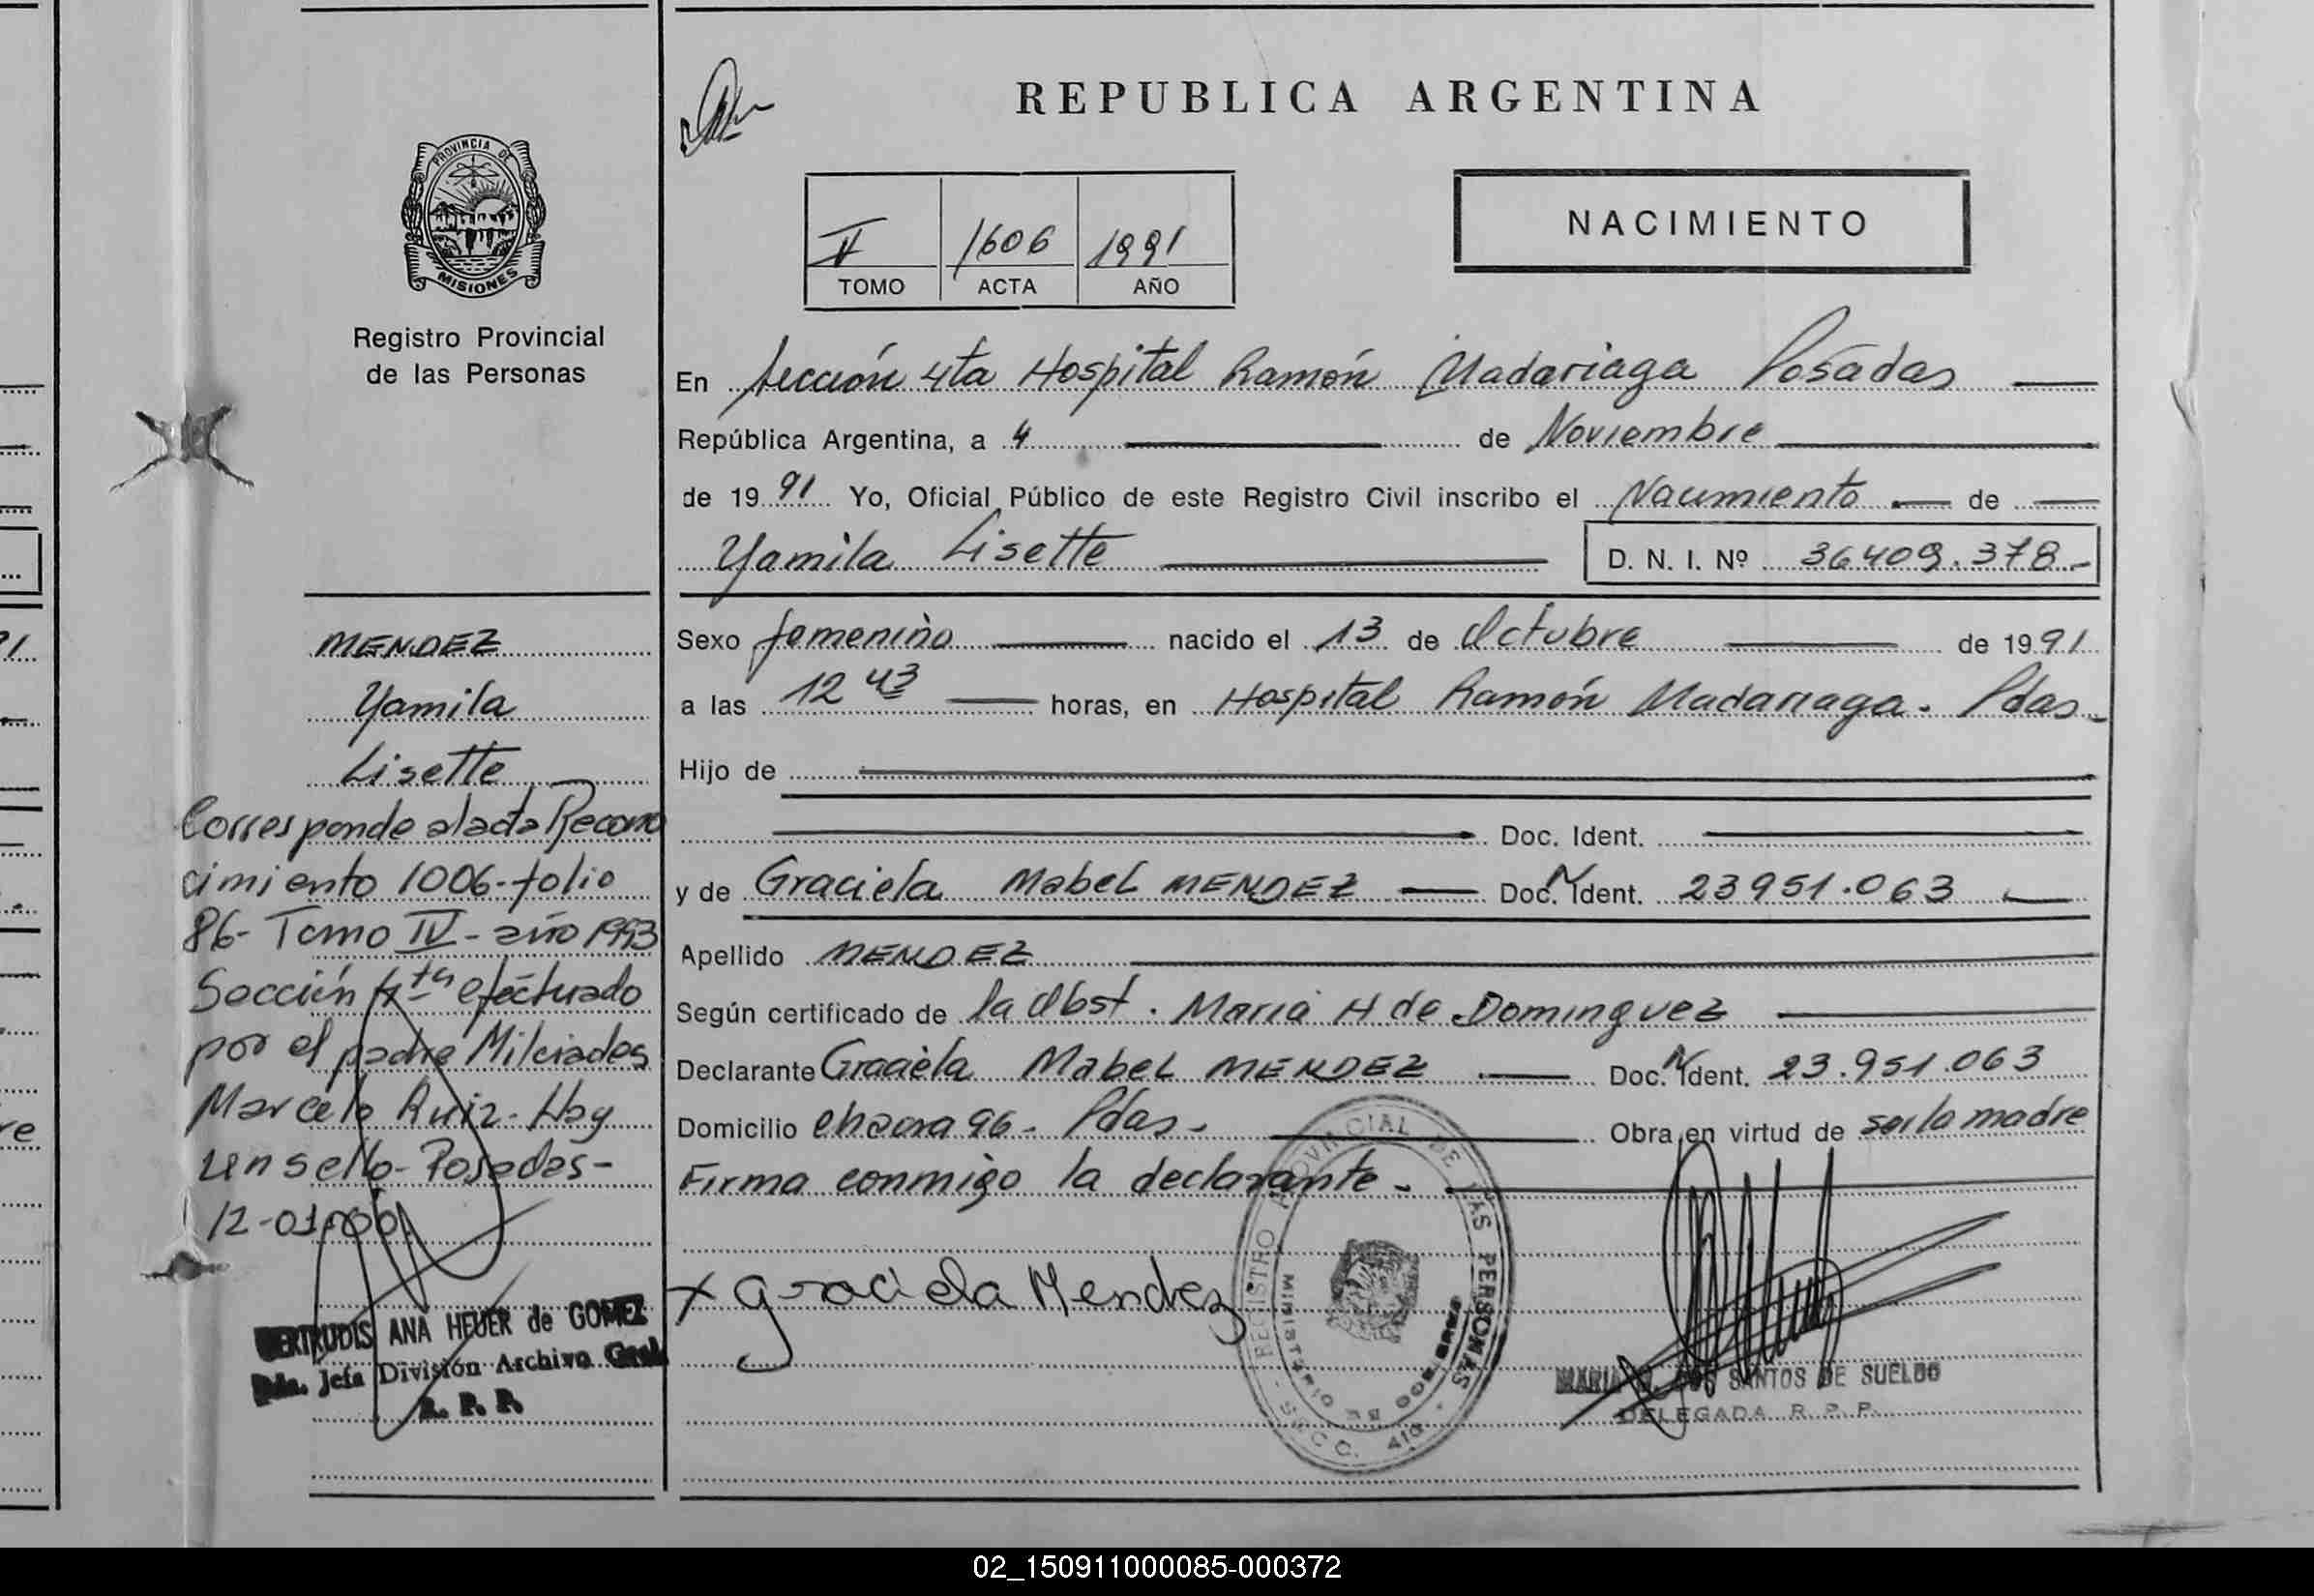 REPUBLICA ARGENTINA
PROVINCIA DE
MISIONES
Registro Provincial
de las Personas
1606 1991
TOMO ACTA AÑO
NACIMIENTO
En Sección 4ta Hospital Ramón Madariaga Posadas
República Argentina, a 4 de Noviembre
de 1991 Yo, Oficial Público de este Registro Civil inscribo el Nacimiento de
Yamila Lisette D. N. I. Nº 36409.378.-
Sexo femenino nacido el 13 de Octubre de 1991
a las 12 43 horas, en Hospital Ramón Madariaga. Pdas.
Hijo de
Doc. Ident.
y de Graciela Mabel MENDEZ Doc. Ident. 23951.063
Apellido MENDEZ
Según certificado de la Obst. María H de Dominguez
Declarante Graciela Mabel MENDEZ Doc. Ident. 23.951.063
Domicilio chacra 96 - Pdas - Obra en virtud de ser la madre
Firma conmigo la declarante.-
x Graciela Mendez
REGISTRO PROVINCIAL DE LAS PERSONAS
MINISTERIO DE GOBIERNO
SECC. 4ta
MARIA DOS SANTOS DE SUELDO
DELEGADA R. P. P.
MENDEZ
Yamila
Lisette
Corresponde al acta Recono
cimiento 1006-folio
86- Tomo IV - año 1993
Sección 4ta efectuado
por el padre Milciades
Marcelo Ruiz- Hay
un sello- Posadas-
12-01-00
GERTRUDIS ANA HEUER de GOMEZ
Jefa División Archivo Gral.
R. P. P.
02_150911000085-000372